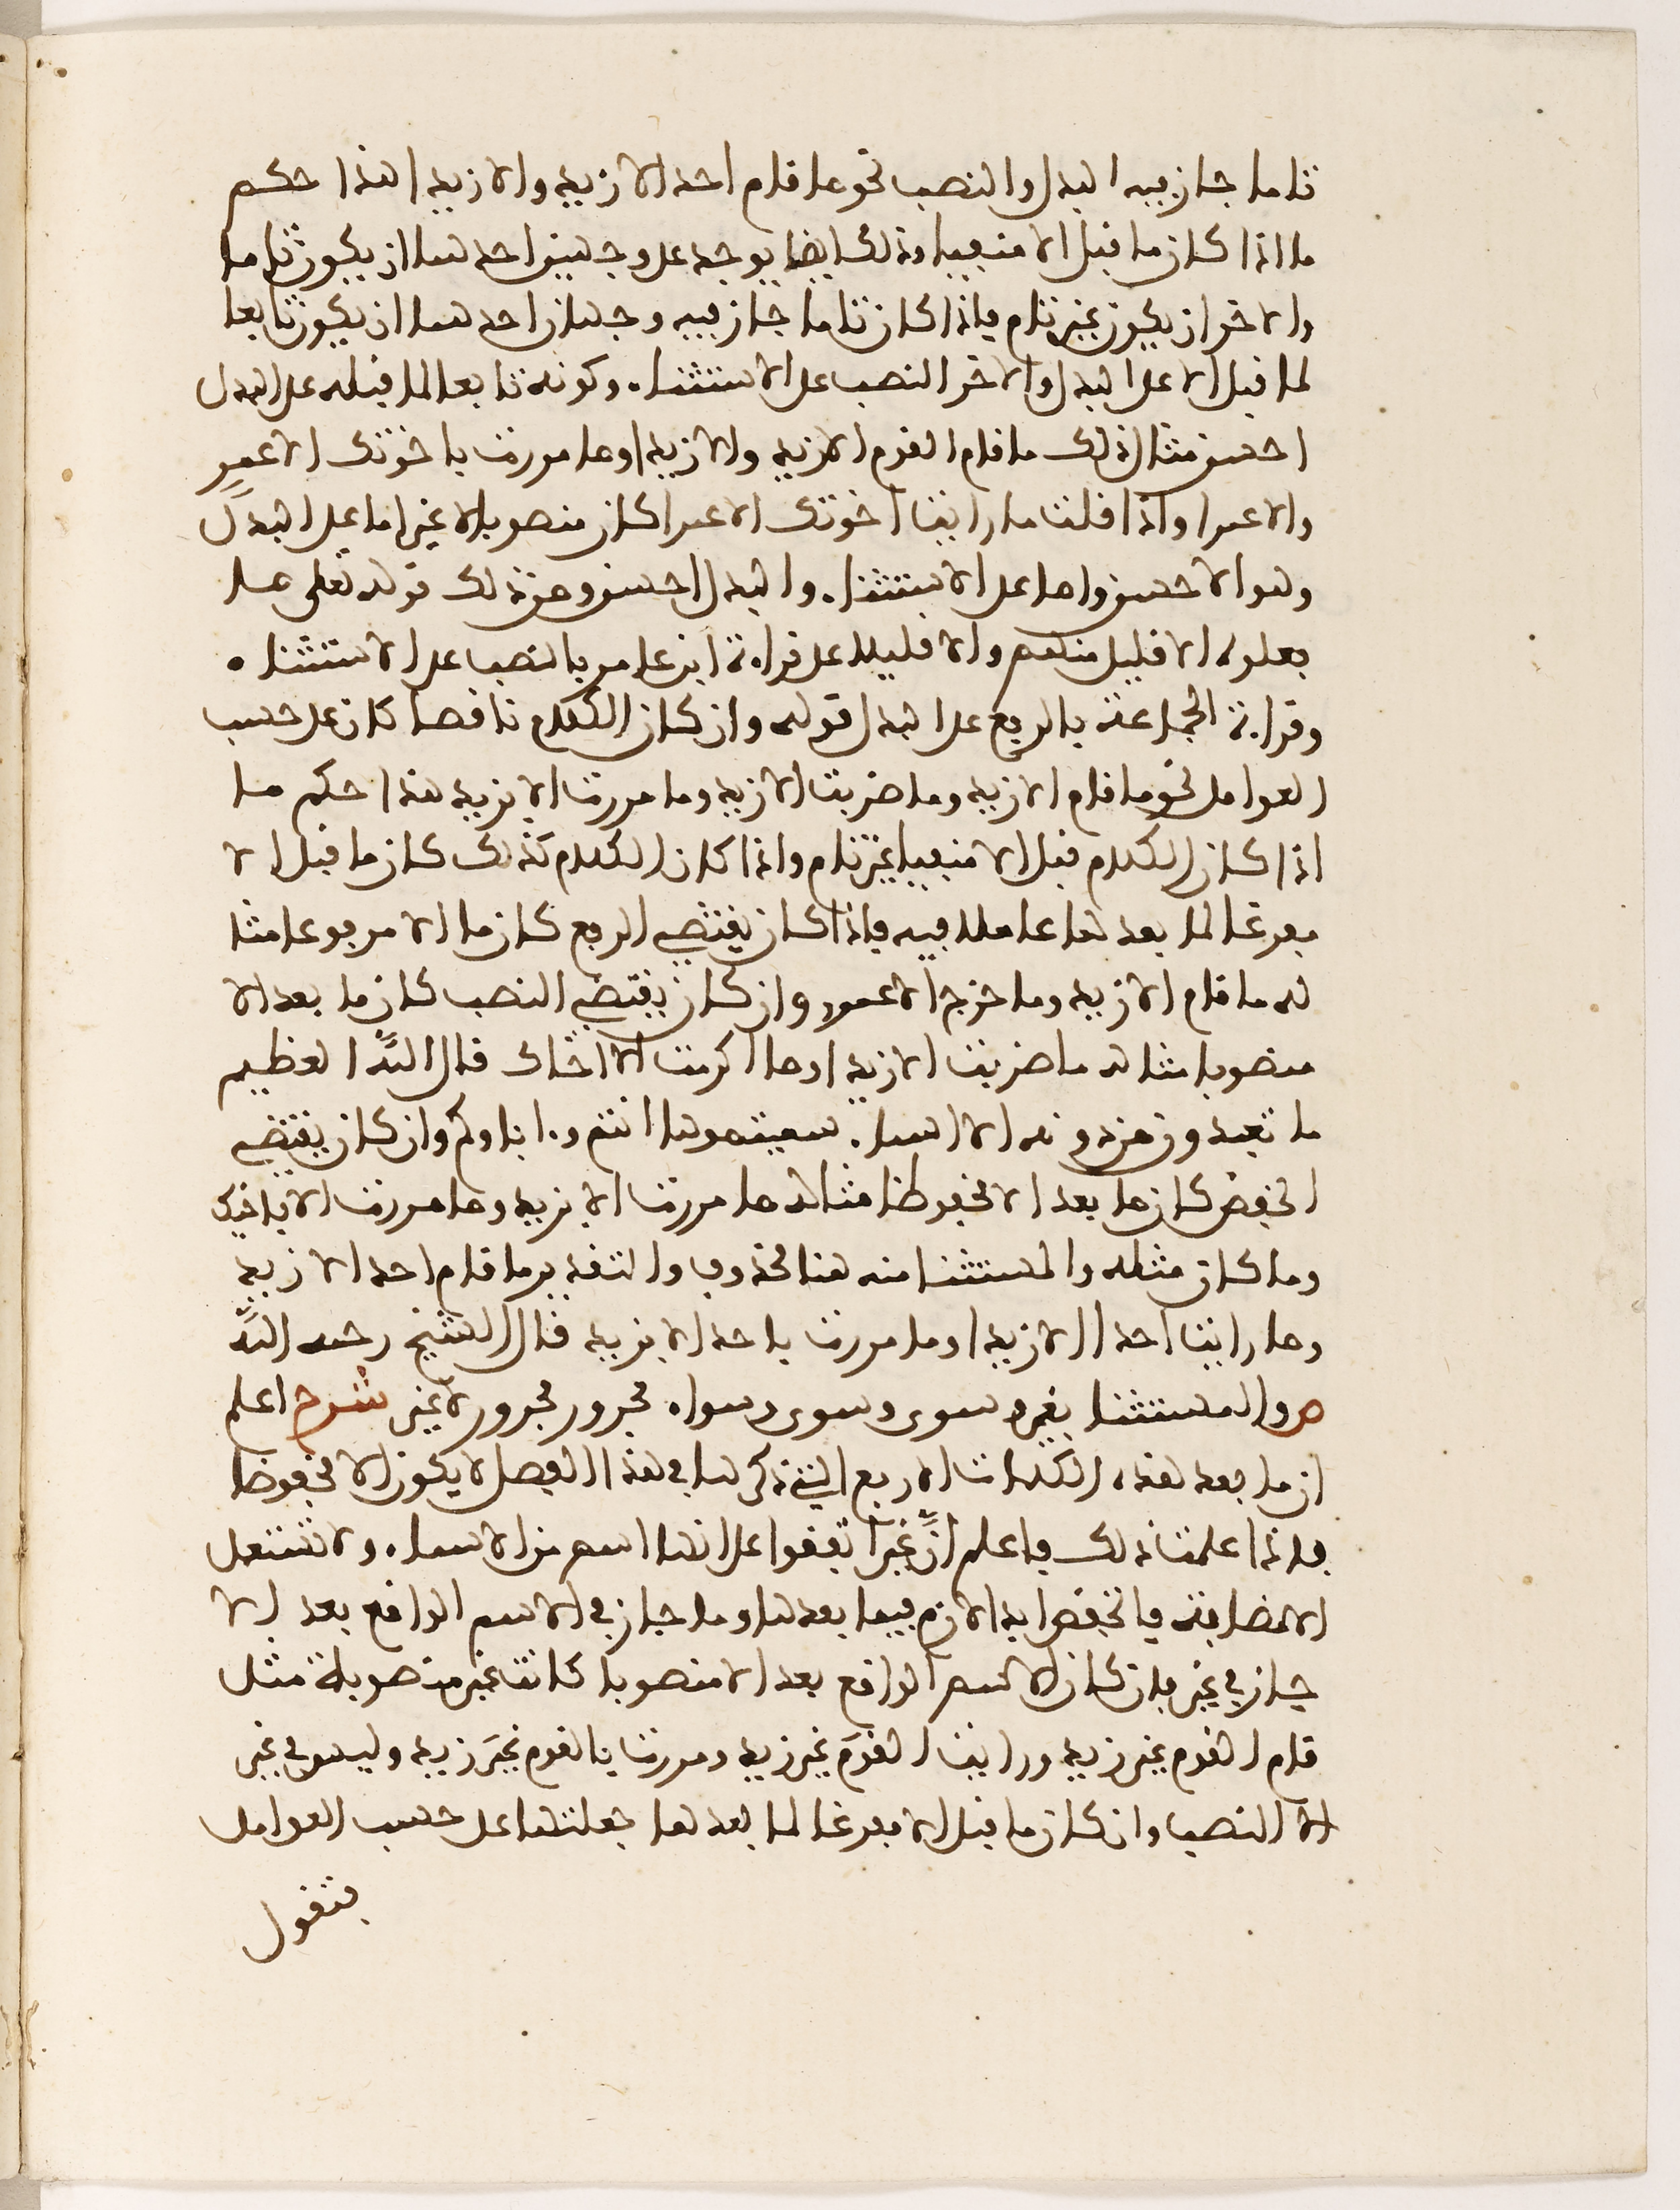 تاما جاز فيه البدل والنصب نحو ما قام احد الا زيد والا زيدا هذا حكم
ما اذا كان ما قبل الا منفيا وذلك ايضا يوجد على وجهين احدهما ان يكون تاما
والاخر ان يكون غير تام فاذا كان تاما جاز فيه وجهان احدهما ان يكون تابعا
لما قبل الا على البدل والاخر النصب على الاستثناء. وكونه تابعا لما قبله على البدل
احسن مثال ذلك ما قام القوم الا زيد والا زيدا وما مررت باخوتك الا عمرٍ
والا عمرا واذا قلت ما رايت اخوتك الا عمرا كان منصوبا لا غير اما على البدل
وهو الاحسن واما على الاستثناء. والبدل احسن ومن ذلك قوله تعلى ما
فعلوه الا قليل منهم والا قليلا على قراءة ابن عامر بالنصب على الاستثناء
وقراءة الجماعة بالرفع على البدل قوله وان كان الكلام ناقصا كان على حسب
العوامل نحو ما قام الا زيد وما ضربت الا زيد وما مررت الا بزيد هذا حكم ما
اذا كان الكلام قبل الا منفيا غير تام واذا كان الكلام كذلك كان ما قبل الا
مفرغا لما بعدها عاملا فيه فاذا كان يقتضي الرفع كان ما الا مرفوعا مثا
له ما قام الا زيد وما خرج الا عمرو وان كان يقتضي النصب كان ما بعد الا
منصوبا مثاله ما ضربت الا زيدا وما اكرمت الا اخاك قال اللَّه العظيم
ما تعبدون من دونه الا اسماء سميتموها انتم وءاباوكم وان كان يقتضي
الخفض كان ما بعد الا مخفوظا مثاله ما مررت الا بزيد وما مررت الا باخيك
وما كان مثله والمستثنا منه هنا محذوف والتقدير ما قام احد الا زيد
وما رايت احدا الا زيدا وما مررت باحد الا بزيد قال الشيخ رحمه اللَّه
ص والمستثنا بغير وسوى وسوى وسواء مجرور مجرور لا غير شرح اعلم
ان ما بعد هذه الكلمات الاربع التي ذكرها في هذا الفصل لا يكون الا مخفوضا
فاذا علمت ذلك فاعلم انَّ غيرا تفقوا على انها اسم من الاسماء. ولا تستعمل
الا مضافة فالخفض ابدا لازم فيما بعدها وما جاز في الاسم الواقع بعد الا
جاز في غير فان كان الاسم الواقع بعد الا منصوبا كانت غير منصوبة مثل
قام القوم غير زيد ورايت القومَ غير زيد ومررت بالقوم غيرَ زيد وليس في غير
الا النصب وان كان ما قبل الا مفرغا لما بعدها جعلتها على حسب العوامل
فتقول